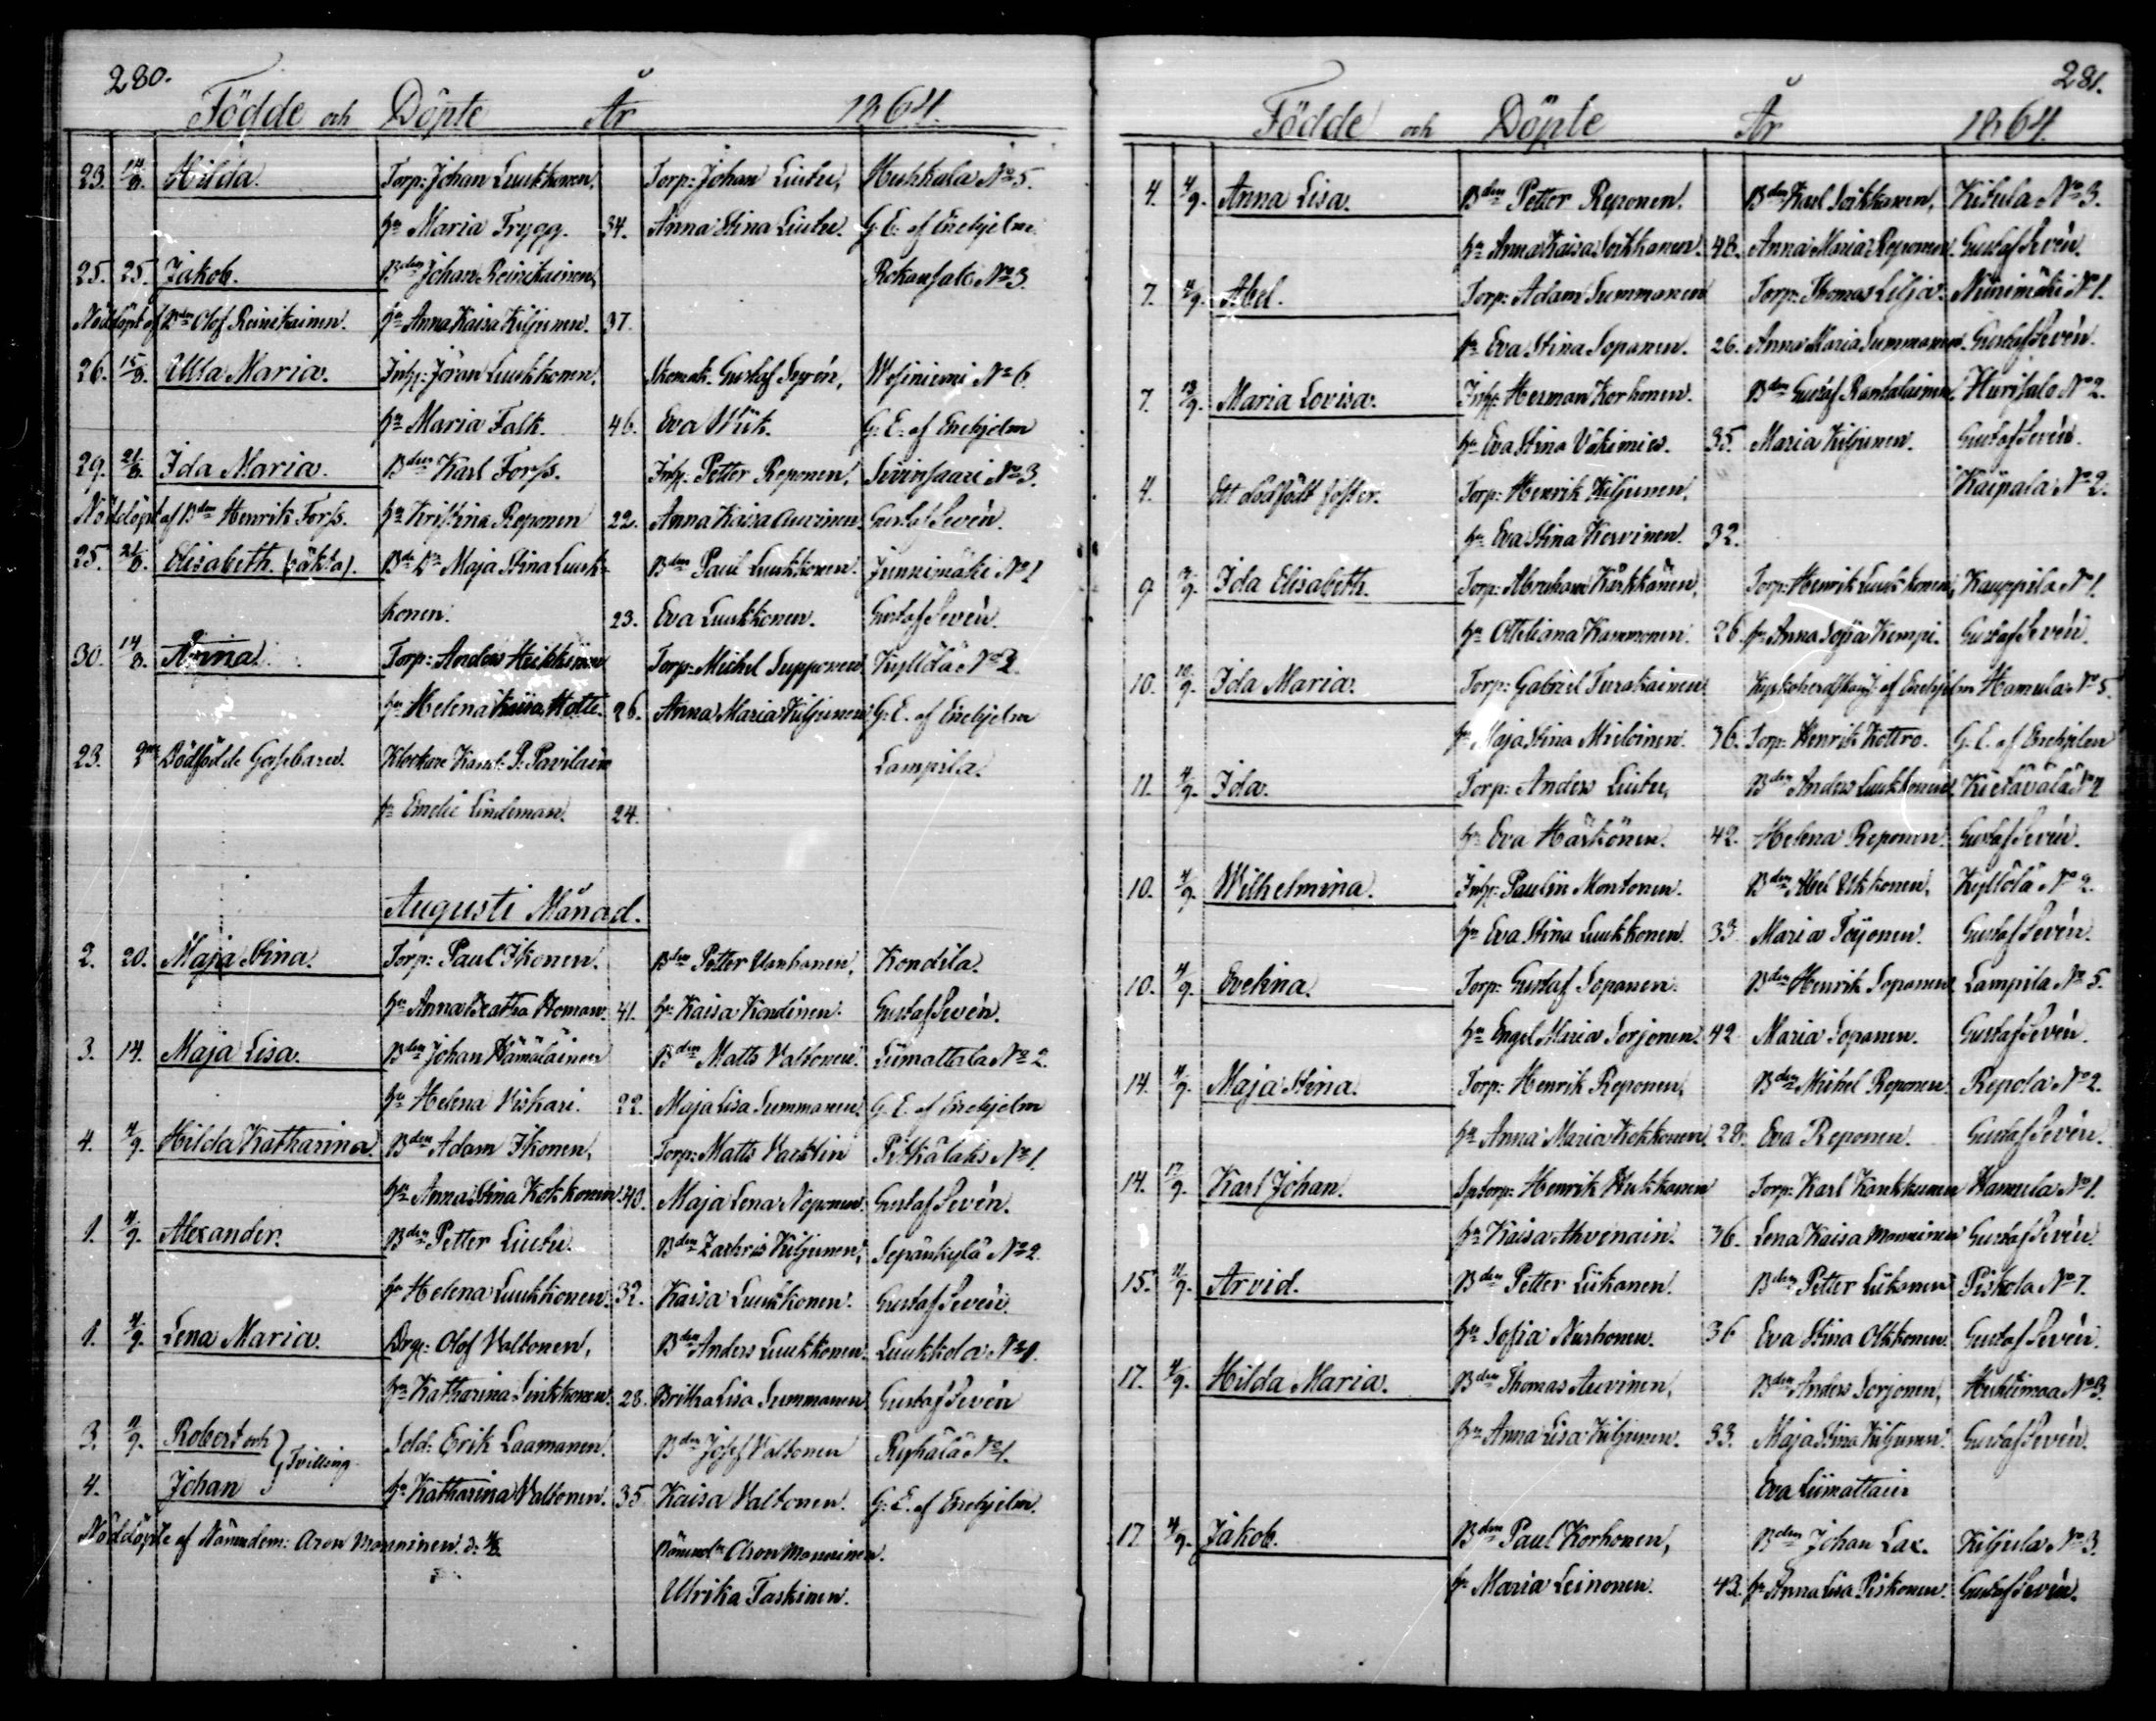 280.
Födde och Döpte År 1864.
23. 14/8. Hilda. Torp: Johan Luukkonen, Torp: Johan Liutu, Huhkala No 5.
hu Maria Trygg. 34. Anna Stina Liutu. G. E. af Enehjelm
25. 25. Jakob. Bden Johan Reinikainen, Rokansalo No 3.
Nöddöpt af Bden Olof Reinikainen. hu Anna Kaisa Kiljunen. 37.
26. 15/8. Ulla Maria. Inh: Jöran Luukkonen, Skomak. Gustaf Sirén, Wesiniemi No 6.
hu Maria Falk. 46. Eva Wiik. G. E. af Enehjelm
29. 21/8. Ida Maria. Bden Karl Forss. Inh. Petter Reponen, Sivinsaari No 3.
Nöddöpt af Bden Henrik Forss. hu Kristina Reponen 22. Anna Kaisa Auvinen. Gustaf Sevén.
25. 21/8. Elisabeth (oäkta). Bde Dr Maja Stina Luuk- Bden Paul Luukkonen. No 1
konen. 23. Eva Luukkonen. Gustaf Sevén.
30. 14/8. Anna. Torp: Anders Heikkinen Torp: Michel Supponen Kyllölä No 2.
hu Helena Kaisa 26. Anna Maria Kiljunen G. E. af Enehjelm
23. Dödfödde Gossebarn. Klockare Kand. P. Pavilain Lampila.
hu Emelie Lindeman. 24.
Augusti Månad.
2. 20. Maja Stina. Torp: Paul Ikonen. Bden Petter Vanhanen, Kondila.
hu Anna Beatha Homan. 41. hu Kaisa Kondinen. Gustaf Sevén.
3. 14. Maja Lisa. Bden Johan Hämäläinen Bden Matts Valtonen. Liimattala No 2.
hu Helena Viskari. 22. Maja Lisa Summanen. G. E. af Enehjelm
4. 4/9. Hilda Katharina. Bden Adam Ikonen, Torp: Matts Partin Pitkälaks No 1.
hu Anna Stina Kokkonen. 40. Maja Lena Noponen. Gustaf Sevén.
1. 4/9. Alexander. Bden Petter Liutu. Bden Zachris Kiljunen, Sepänkylä No 2.
hu Helena Luukkonen. 32. Kaisa Luukkonen. Gustaf Sevén.
1. 4/9. Lena Maria. Drg: Olof Valtonen, Bden Anders Luukkonen. Luukkola No 1.
hu Katharina Sinkkonen. 28. Britha Lisa Summanen. Gustaf Sevén
3. 4/9. Robert och } Tvilling Sold: Erik Laamanen. Bden Josef Valtonen Rephälä No 1.
4. Johan hu Katharina Valtonen. 35. Kaisa Valtonen. G. E. af Enehjelm.
Nöddöpte af Nämndem: Aron Manninen d. 4/8. Nämndm Aron Manninen.
Ulrika Taskinen.
281.
Födde och Döpte År 1864.
4. 4/9. Anna Lisa. Bden Petter Reponen. Bden Karl Soikkanen, Kitula No 3.
hu Anna Kaisa Soikkanen. 48. Anna Maria Reponen. Gustaf Sevén.
7. 4/9. Abel. Torp: Adam Summanen Torp: Thomas Lilja. Niinimäki No 1.
hu Eva Stina Soponen. 26. Anna Maria Summanen. Gustaf Sevén.
7. 18/9. Maria Lovisa. Inh: Herman Korhonen. Bden Gustaf Rantalainen. Hurisalo No 2.
hu Eva Stina Väkimies. 35. Maria Kiljunen. Gustaf Sevén.
4. Ett dödfödt foster. Torp: Henrik Kiljunen. Käipälä No 2.
hu Eva Stina Kervinen. 32.
9. Ida Elisabeth. Torp: Abraham Kärkkänen, Torp: Henrik Luukkonen, Kauppila No 1.
hu Otteliana Kammonen. 26. hu Anna Sofia Kempi. Gustaf Sevén.
10. 10/9. Ida Maria. Torp: Gabriel Turakainen. Kyrkoherdskan af Enehjelm Hamula No 5.
hu Maja Stina Miiloinen. 36. Torp: Henrik Kottro. G. E. af Enehjelm
11. 4/9. Ida. Torp: Anders Liutu, Bden Anders Luukkonen, Kietävälä No 2
hu Eva Härkönen. 42. Helena Reponen. Gustaf Sevén.
10. 4/9. Wilhelmina. Inh: Paulin Montonen. Bden Abel Ukkonen, Kyllölä No 2.
hu Eva Stina Luukkonen. 33. Maria Töyonen. Gustaf Sevén.
10. 4/9. Evelina. Torp: Gustaf Soponen. Bden Henrik Soponen. Lampila No 5.
hu Engel Maria Sorjonen. 42. Maria Soponen. Gustaf Sevén.
14. 4/9. Maja Stina. Torp: Henrik Reponen, Bden Michel Reponen. Repola No 2.
hu Anna Maria Kokkonen. 28. Eva Reponen. Gustaf Sevén.
14. 17/9. Karl Johan. Sptorp: Henrik Hukkanen Torp: Karl Kankkunen Hamula No 1.
hu Kaisa Ahvenain. 36. Lena Kaisa Manninen Gustaf Sevén.
15. 4/9. Arvid. Bden Petter Liikanen. Bden Petter Liikanen Piskola No 7.
hu Sofia Nurhonen. 36. Eva Stina Olkkonen. Gustaf Sevén.
17. 4/9. Hilda Maria. Bden Thomas Auvinen, Bden Anders Sorjonen, Huhtimaa No 3.
hu Anna Lisa Kiljunen. 33. Maja Stina Kiljunen. Gustaf Sevén.
Eva Liimattain
17. 4/9. Jakob. Bden Paul Korhonen, Bden Johan Lax. Kiljula No 3.
hu Maria Leinonen. 43. hu Anna Lisa Piskonen. Gustaf Sevén.